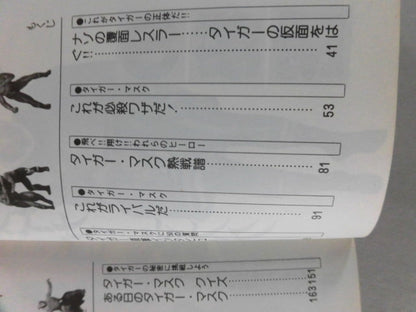 もくじ
●これがタイガーの正体だ!!
ナゾの覆面レスラー……タイガーの仮面をは
ぐ!!……41
●タイガー・マスク
これが必殺ワザだ!……53
●飛べ!!翔け!!われらのヒーロー
タイガー・マスク熱戦譜……81
●タイガー・マスク
これがライバルだ……91
●タイガー・マスクに50の質問
●タイガーの秘密に挑戦しよう
タイガー・マスク クイズ……151
ある日のタイガー・マスク……163